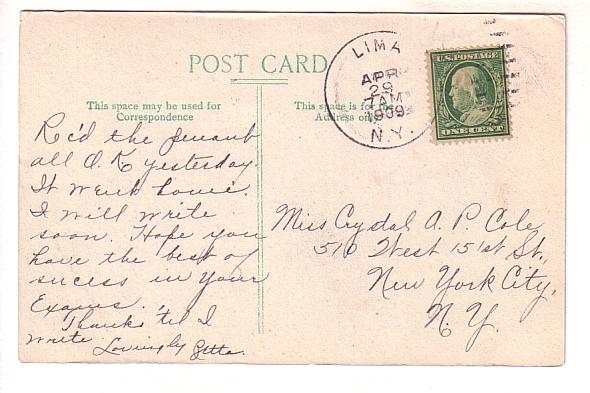 POST CARD
This space may be used for
Correspondence
This space is for the
Address only
LIMA
APR
29
7 AM
1909
N.Y.
U.S. POSTAGE
ONE CENT
Rec'd the penant
all O.K. yesterday.
It went home.
I will write
soon. Hope you
have the best of
sucess in your
Exams.
Thanks 'til I
write.
Lovingly Etta.
Miss Crystal A. P. Cole
510 West 151st St.,
New York City,
N.Y.